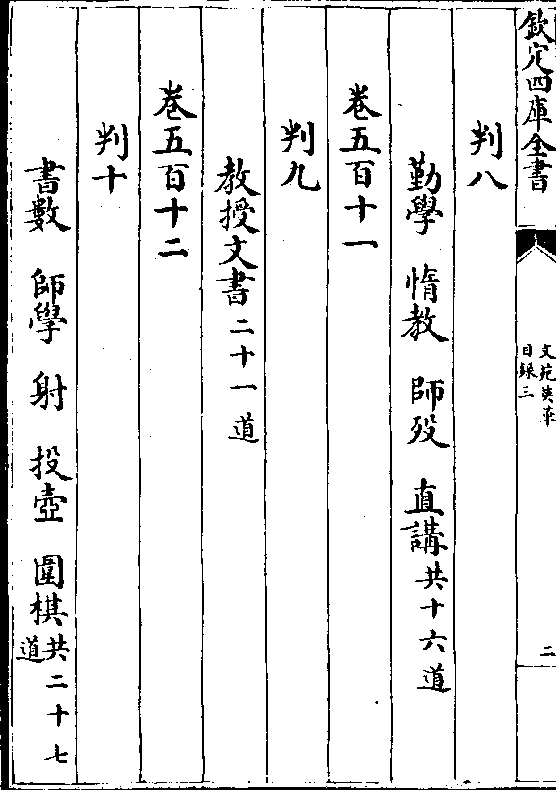 欽定四庫全書
文苑英華
目録三
二
判八
勤學　惰教　師歿　直講共十六道
卷五百十一
判九
教授文書二十一道
卷五百十二
判十
書數　師學　射　投壺　圍棋共二十七道